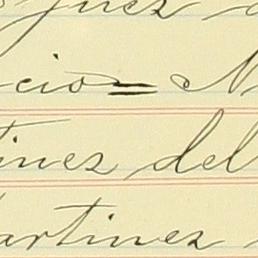 juez
cio= N
inez del
artinez